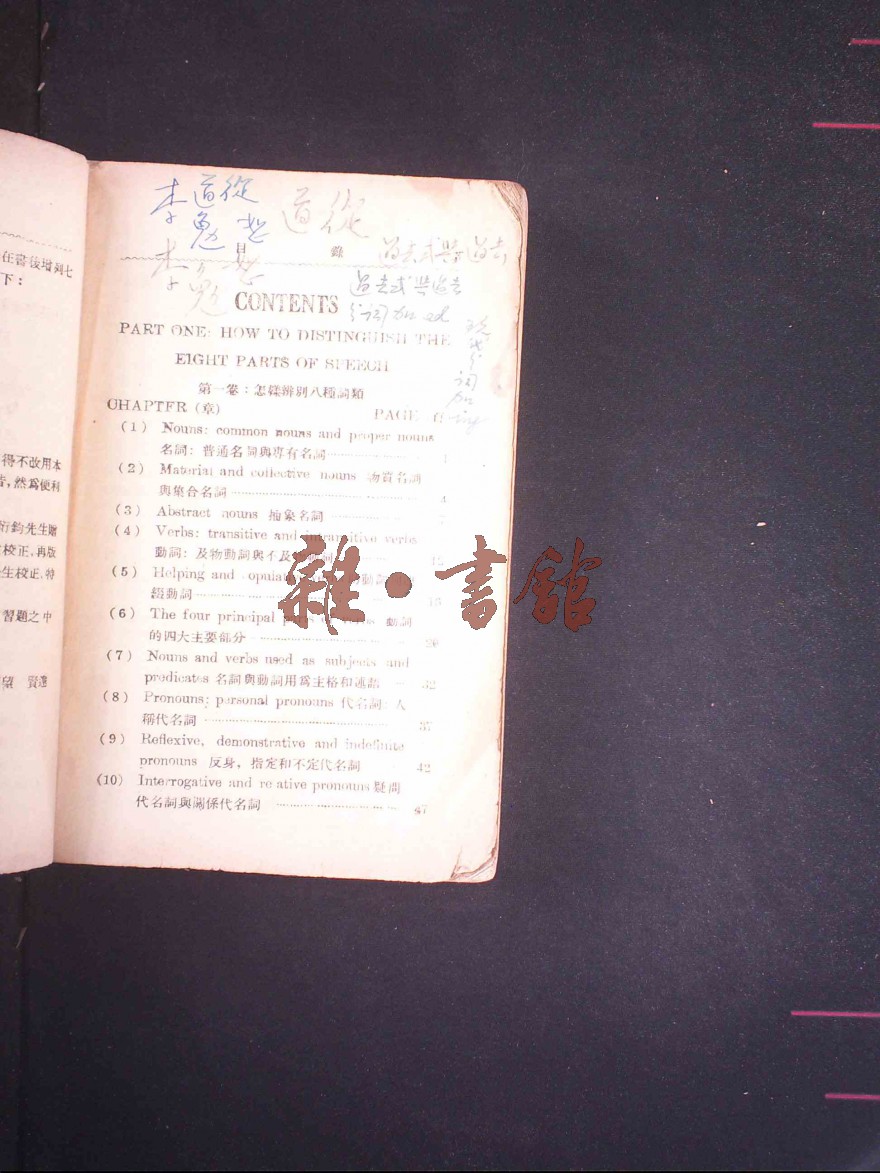 在書後增列七
下：
得不改用本
然爲便利
衍鈞先生贈
校正，再版
生校正，特
習題之中
望 賢達
李道從
道從
李
目 錄
過去式與過去
過去式與過去
分詞加 ed
現
代
分
詞
加
ing
CONTENTS
PART ONE: HOW TO DISTINGUISH THE
EIGHT PARTS OF SPEECH
第一卷：怎樣辨別八種詞類
CHAPTER (章) PAGE
(1) Nouns: common nouns and proper nouns
名詞：普通名詞與專有名詞 1
(2) Material and collective nouns 物質名詞
與集合名詞 4
(3) Abstract nouns 抽象名詞 7
(4) Verbs: transitive and intransitive verbs
動詞：及物動詞與不及物動詞
(5) Helping and opulat 動
綴動詞
(6) The four principal 動詞
的四大主要部分 20
(7) Nouns and verbs used as subjects and
predicates 名詞與動詞用爲主格和述語 32
(8) Pronouns: personal pronouns 代名詞：人
稱代名詞 37
(9) Reflexive, demonstrative and indefinite
pronouns 反身，指定和不定代名詞 42
(10) Interrogative and relative pronouns 疑問
代名詞與關係代名詞 47
雜·書館